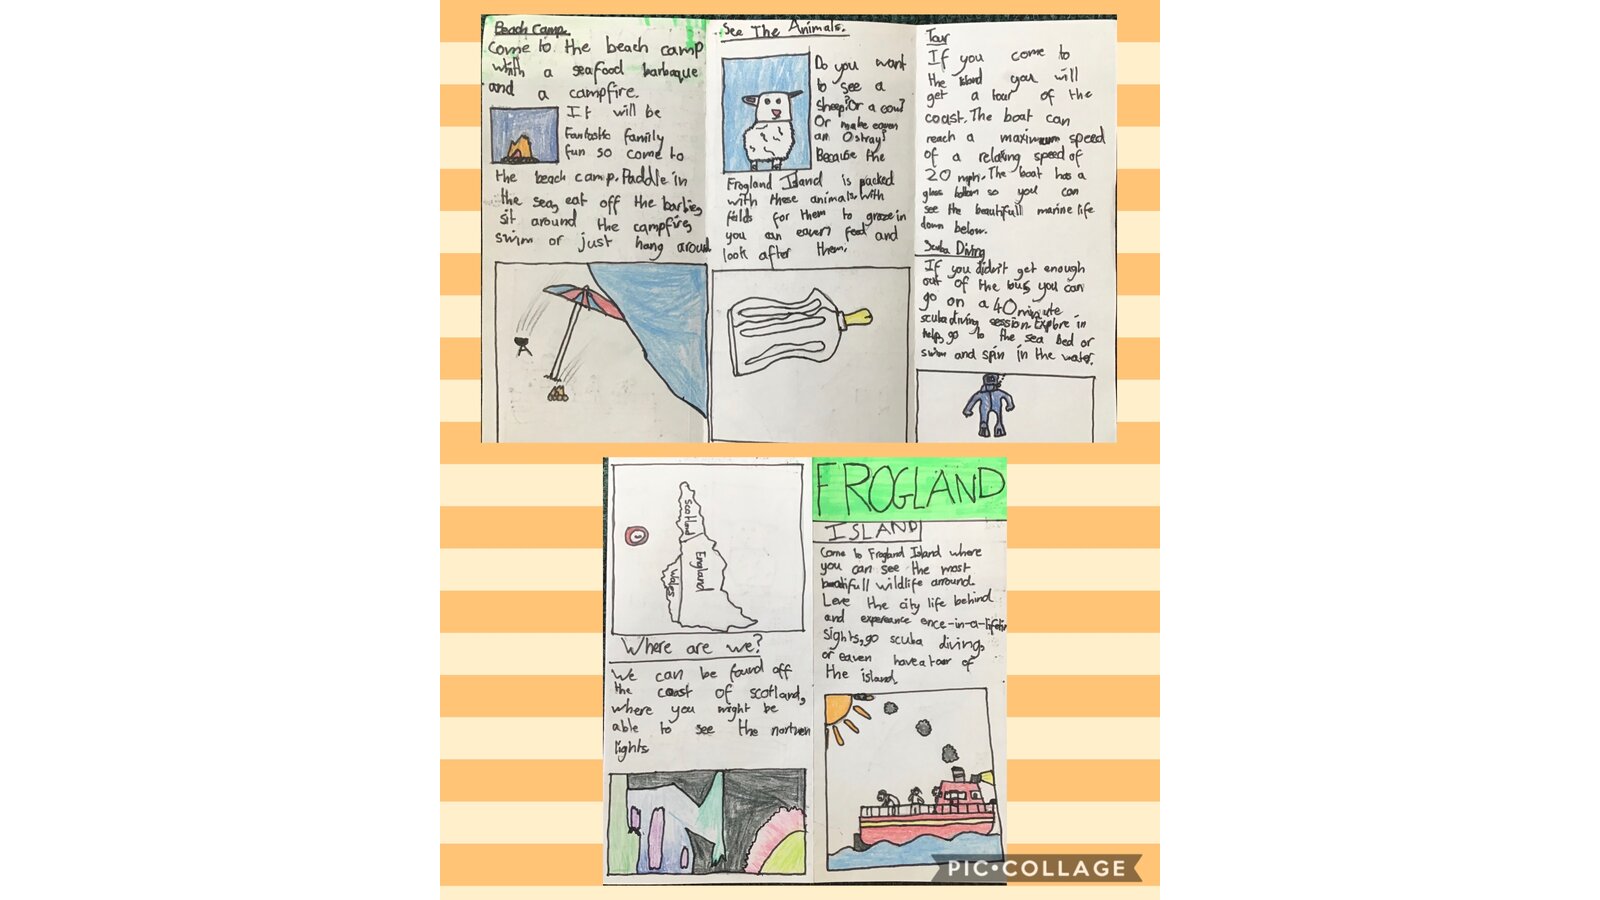 Beach Camp.
Come to the beach camp
with a seafood barbaque
and a campfire.
It will be
Fantastic family
fun so come to
the beach camp. Paddle in
the sea, eat off the barbie,
sit around the campfire,
swim or just hang around
See The Animals.
Do you want
to see a
sheep? Or a cow?
Or make eaven
an Ostray?
Because the
Frogland Island is packed
with these animals. With
feilds for them to graze in
you can eaven feed and
look after them.
Tour
If you come to
the island you will
get a tour of the
coast. The boat can
reach a maximum speed
of a relaxing speed of
20 mph. The boat has a
glass bottom so you can
see the beautifull marine life
down below.
Scuba Diving
If you didn't get enough
out of the bus, you can
go on a 40 minute
scuba diving session. Explore in
help, go to the sea bed or
swim and spin in the water.
Scotland
England
Wales
Where are we?
We can be found off
the coast of scotland,
where you might be
able to see the northen
lights
FROGLAND
ISLAND
Come to Frogland Island where
you can see the most
beautifull wildlife arround.
Leve the city life behind
and expereance once-in-a-lifetime
sights, go scuba diving,
or eaven have a tour of
the island.
PIC•COLLAGE